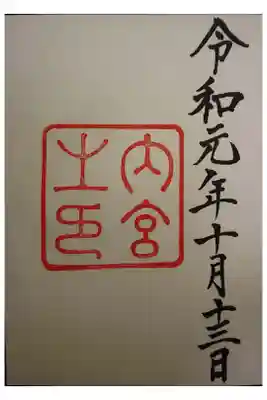 令和元年十月十三日
内宮
之印